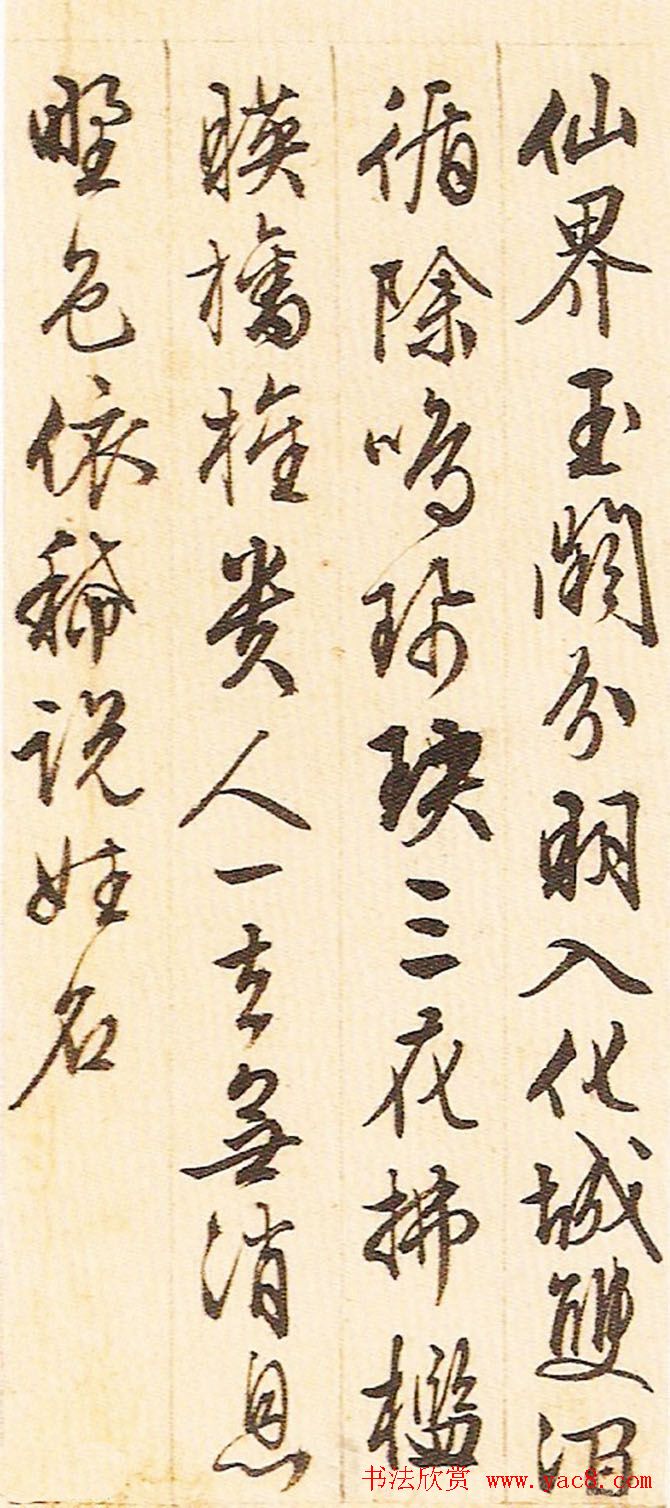 仙界玉闕分明入化城雙澗
循除鳴珮玦三花拂檻
暎旛旌貴人一去無消息
野色依稀說姓名
书法欣赏 www.yac8.com